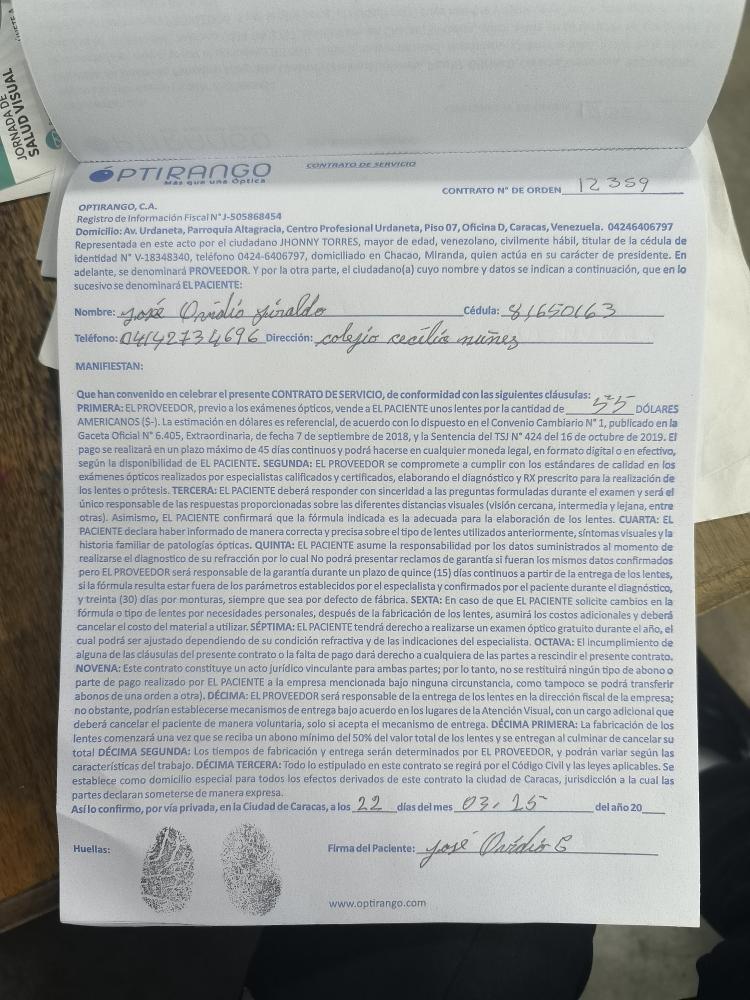 JORNADA DE
SALUD VISUAL
OPTIRANGO
Más que una Óptica
CONTRATO DE SERVICIO
CONTRATO N° DE ORDEN 12359
OPTIRANGO, C.A.
Registro de Información Fiscal N° J-505868454
Domicilio: Av. Urdaneta, Parroquia Altagracia, Centro Profesional Urdaneta, Piso 07, Oficina D, Caracas, Venezuela. 04246406797
Representada en este acto por el ciudadano JHONNY TORRES, mayor de edad, venezolano, civilmente hábil, titular de la cédula de
identidad N° V-18348340, teléfono 0424-6406797, domiciliado en Chacao, Miranda, quien actúa en su carácter de presidente. En
adelante, se denominará PROVEEDOR. Y por la otra parte, el ciudadano(a) cuyo nombre y datos se indican a continuación, que en lo
sucesivo se denominará EL PACIENTE:
Nombre: José Ovidio Giraldo Cédula: 81650163
Teléfono: 04142734696 Dirección: colegio cecilio nuñez
MANIFIESTAN:
Que han convenido en celebrar el presente CONTRATO DE SERVICIO, de conformidad con las siguientes cláusulas:
PRIMERA: EL PROVEEDOR, previo a los exámenes ópticos, vende a EL PACIENTE unos lentes por la cantidad de 55 DÓLARES
AMERICANOS ($-). La estimación en dólares es referencial, de acuerdo con lo dispuesto en el Convenio Cambiario N° 1, publicado en la
Gaceta Oficial N° 6.405, Extraordinaria, de fecha 7 de septiembre de 2018, y la Sentencia del TSJ N° 424 del 16 de octubre de 2019. El
pago se realizará en un plazo máximo de 45 días continuos y podrá hacerse en cualquier moneda legal, en formato digital o en efectivo,
según la disponibilidad de EL PACIENTE. SEGUNDA: EL PROVEEDOR se compromete a cumplir con los estándares de calidad en los
exámenes ópticos realizados por especialistas calificados y certificados, elaborando el diagnóstico y RX prescrito para la realización de
los lentes o prótesis. TERCERA: EL PACIENTE deberá responder con sinceridad a las preguntas formuladas durante el examen y será el
único responsable de las respuestas proporcionadas sobre las diferentes distancias visuales (visión cercana, intermedia y lejana, entre
otras). Asimismo, EL PACIENTE confirmará que la fórmula indicada es la adecuada para la elaboración de los lentes. CUARTA: EL
PACIENTE declara haber informado de manera correcta y precisa sobre el tipo de lentes utilizados anteriormente, síntomas visuales y la
historia familiar de patologías ópticas. QUINTA: EL PACIENTE asume la responsabilidad por los datos suministrados al momento de
realizarse el diagnostico de su refracción por lo cual No podrá presentar reclamos de garantía si fueran los mismos datos confirmados
pero EL PROVEEDOR será responsable de la garantía durante un plazo de quince (15) días continuos a partir de la entrega de los lentes,
si la fórmula resulta estar fuera de los parámetros establecidos por el especialista y confirmados por el paciente durante el diagnóstico,
y treinta (30) días por monturas, siempre que sea por defecto de fábrica. SEXTA: En caso de que EL PACIENTE solicite cambios en la
fórmula o tipo de lentes por necesidades personales, después de la fabricación de los lentes, asumirá los costos adicionales y deberá
cancelar el costo del material a utilizar. SÉPTIMA: EL PACIENTE tendrá derecho a realizarse un examen óptico gratuito durante el año, el
cual podrá ser ajustado dependiendo de su condición refractiva y de las indicaciones del especialista. OCTAVA: El incumplimiento de
alguna de las cláusulas del presente contrato o la falta de pago dará derecho a cualquiera de las partes a rescindir el presente contrato.
NOVENA: Este contrato constituye un acto jurídico vinculante para ambas partes; por lo tanto, no se restituirá ningún tipo de abono o
parte de pago realizado por EL PACIENTE a la empresa mencionada bajo ninguna circunstancia, como tampoco se podrá transferir
abonos de una orden a otra). DÉCIMA: EL PROVEEDOR será responsable de la entrega de los lentes en la dirección fiscal de la empresa;
no obstante, podrían establecerse mecanismos de entrega bajo acuerdo en los lugares de la Atención Visual, con un cargo adicional que
deberá cancelar el paciente de manera voluntaria, solo si acepta el mecanismo de entrega. DÉCIMA PRIMERA: La fabricación de los
lentes comenzará una vez que se reciba un abono mínimo del 50% del valor total de los lentes y se entregan al culminar de cancelar su
total DÉCIMA SEGUNDA: Los tiempos de fabricación y entrega serán determinados por EL PROVEEDOR, y podrán variar según las
características del trabajo. DÉCIMA TERCERA: Todo lo estipulado en este contrato se regirá por el Código Civil y las leyes aplicables. Se
establece como domicilio especial para todos los efectos derivados de este contrato la ciudad de Caracas, jurisdicción a la cual las
partes declaran someterse de manera expresa.
Así lo confirmo, por vía privada, en la Ciudad de Caracas, a los 22 días del mes 03. 25 del año 20
Huellas:
Firma del Paciente: José Ovidio G
www.optirango.com